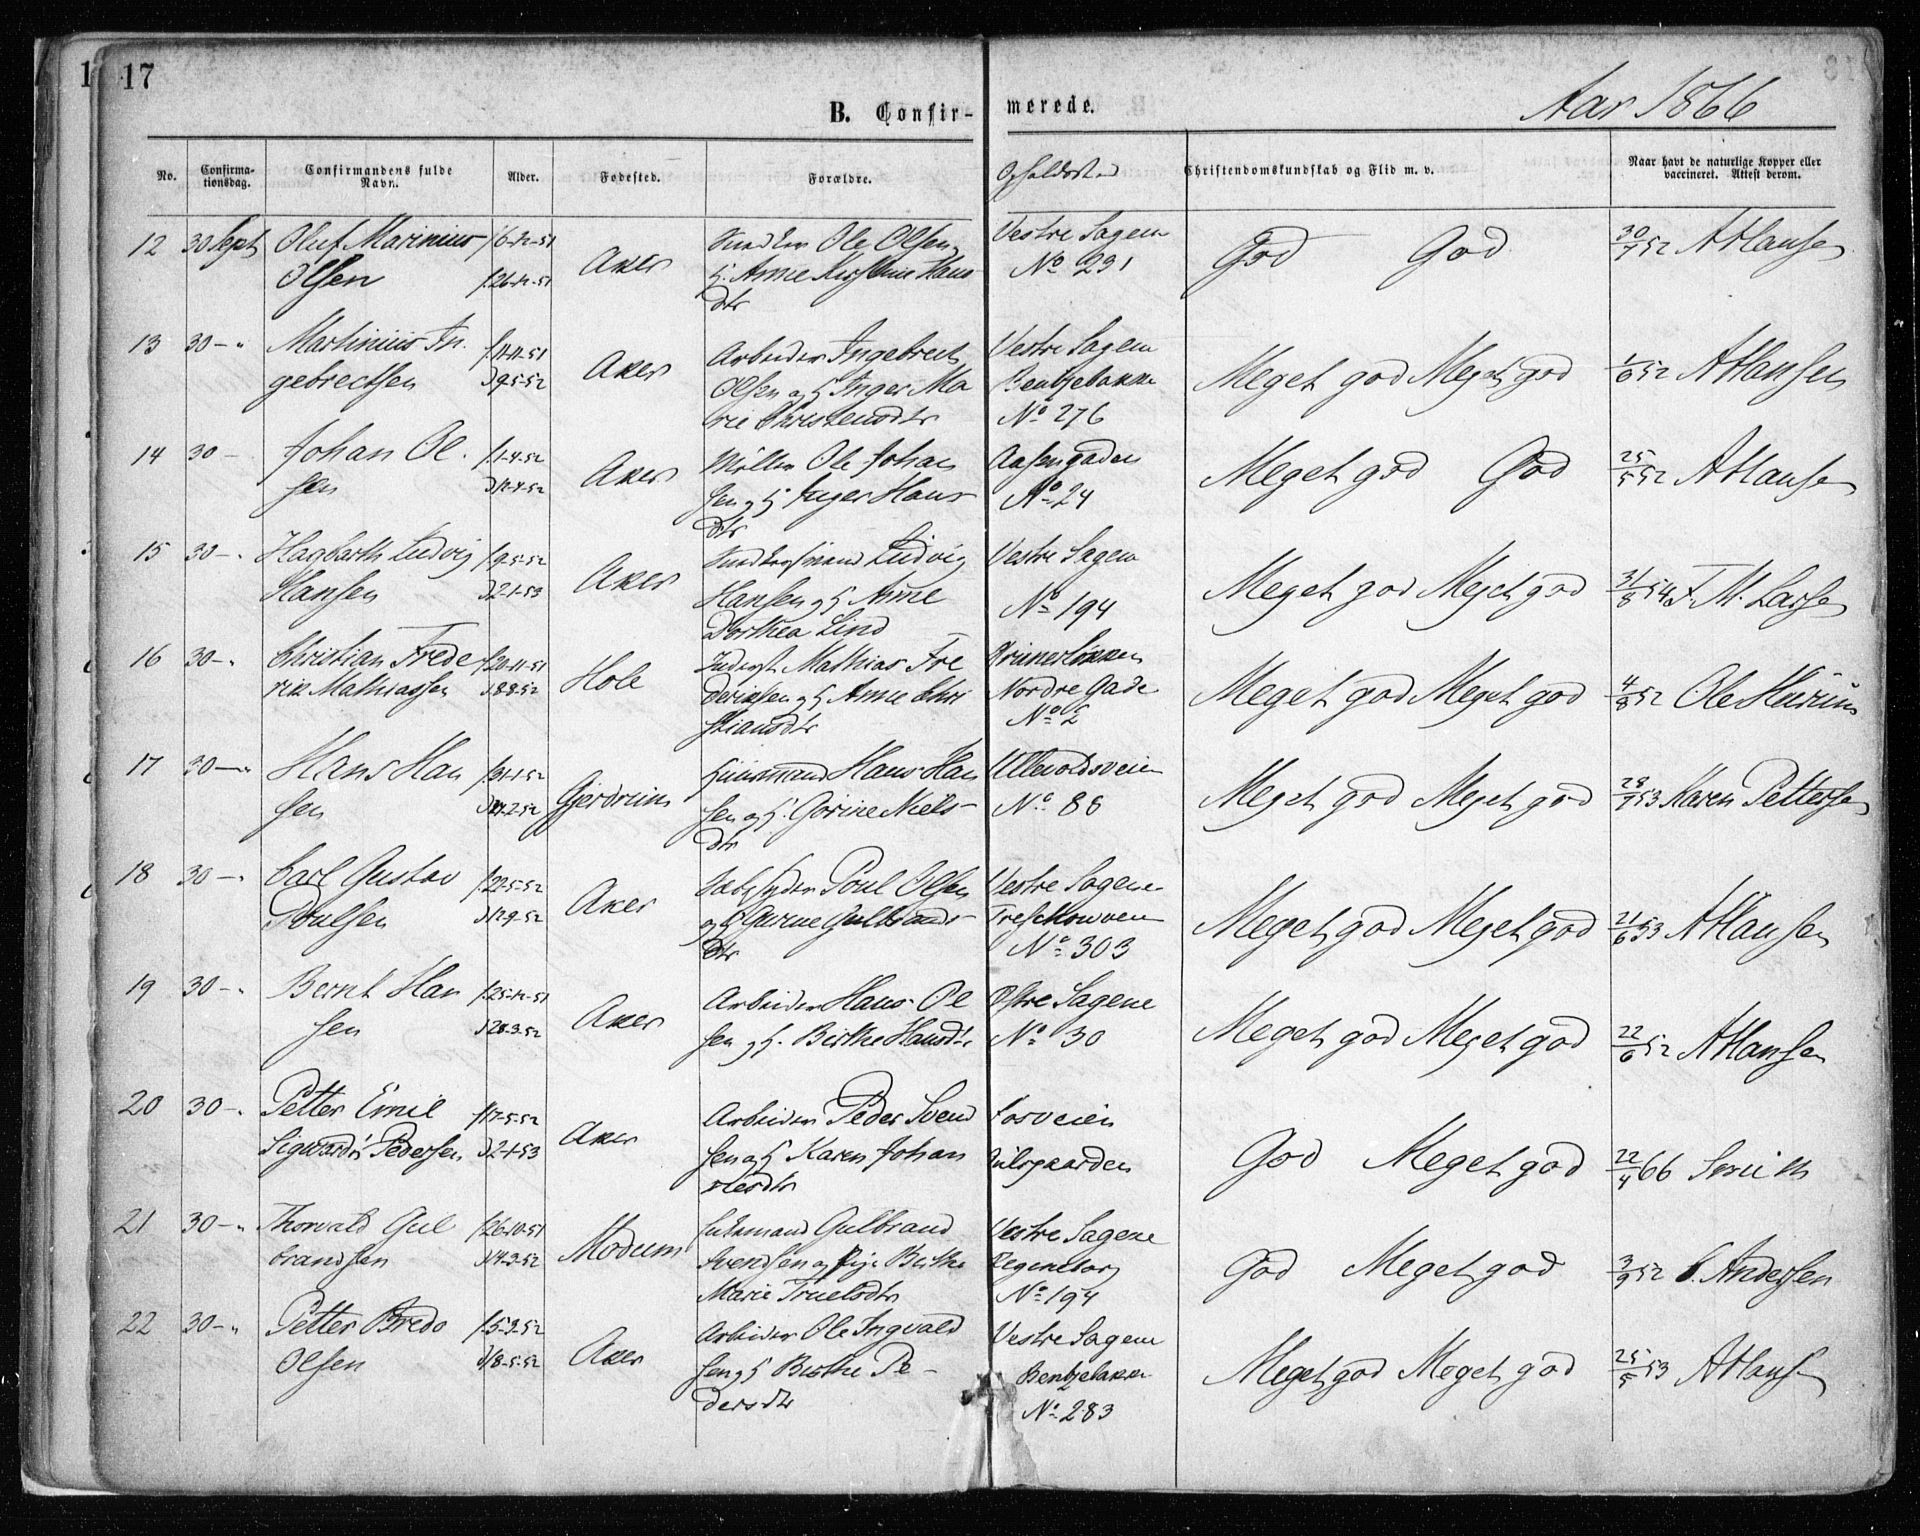 17
B. Confir-
merede.
Aar 1866
No.
Confirma-
tionsdag.
Confirmandens fulde
Navn.
Alder.
Fødested.
Forældre.
Opholdssted
Christendomskundskab og Flid m. v.
Naar havt de naturlige Kopper eller
vaccineret. Attest derom.
12 30 Sept Oluf Marinius
Olsen f. 26-12-51
Aker
Ole Olsen
Hans
dtr
Vestre Sagene
No 231
God God
30/7 52 A Hansen
13 30 - " Martinius In.
gebrectsen
f. 11-11-51
D 9-5-52
Aker
Arbeider Ingebrect
Olsen og H Inger Ma
rie Christensdtr
Vestre Sagene
Bentsebakke
No 276
Meget god Meget god
1/6 52 A Hansen
14 30 - Johan Ol.
sen
f. 1-4-52
D 12-4-52
Aker
Møller Ole Johan
sen og H Inger Hans
dtr
Aasengaden
No 24
Meget god God
25/5 52 A Hansen
15 30 - " Hagbarth Ludvig
Hansen
f. 9-5-52
D 2-1-53
Aker
Ludvig
Hansen og H Anne
Dorthea Lind
Vestre Sagene
No 194
Meget god Meget god
31/8 54 F. M. Larsen
16 30 - " Christian Frede
rik Mathiassen
f. 20-11-51
D 8-8-52
Hole
Inderst Mathias Fre
deriksen og H Anne Chri
stiansdtr
Grünerløkken
Nordre Gade
No 2
Meget god Meget god
4/8 52 Ole
17 30 - " Hans Han
sen
f. 31-1-52
Gjerdrum
Huusmand Hans Han
sen og H. Gorine Niels-
dtr
Ullevoldsveien
No 88
Meget god Meget god
28/7 53 Karen Pettersen
18 30 - " Carl Gustav
Poulsen
f. 22-5-52
D 12-9-52
Aker
Poul Olsen
og H Gulbrands-
dtr
Vestre Sagene
Treschowveien
No 303
Meget god Meget god
21/6 53 A Hansen
19 30 - " Bernt Han
sen
f. 25-12-51
D 28-3-52
Aker
Arbeider Hans Ol
sen og H. Birthe Hansdtr
Østre Sagene
No 30
Meget god Meget god
22/6 52 A Hansen
20 30 - " Petter Emil
Sigwardt Pedersen
f. 17-5-52
D 2-1-53
Aker
Arbeider Peder Svend
sen og H Karen Johan
nesdtr
God Meget god
22/4 66 Smith
21 30 - " Thorvald Gul
brandsen
f. 26-10-51
D 14-3-52
Modum
Gulbrand
Svendsen og Pige Birthe
Marie Truelsdtr
Vestre Sagene
Regneborg
No 194
God Meget god
3/9 52 C. Andersen
22 30 - " Petter Bredo
Olsen
f. 5-3-52
D 18-5-52
Aker
Arbeider Ole Ingvald
sen og H Birthe Pe-
dersdtr
Vestre Sagene
Bentsebakke
No 283
Meget god Meget god
25/5 53 A Hansen